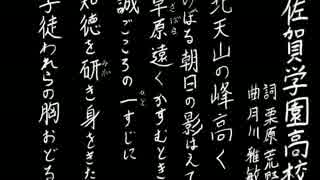 佐賀学園高校
詞 栗原荒野
曲 月川雅敏
北天山の峰高く
のぼる朝日の影はえて
草原遠くかすむとき
さばら
誠ごころの一すじに
ひと
知徳を研き身をきた
みが
学徒われらの胸おどる